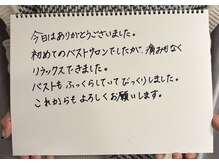 今日はありがとうございました。
初めてのバストサロンでしたが、痛みもなく
リラックスできました。
バストもふっくらしていてびっくりしました。
これからもよろしくお願いします。